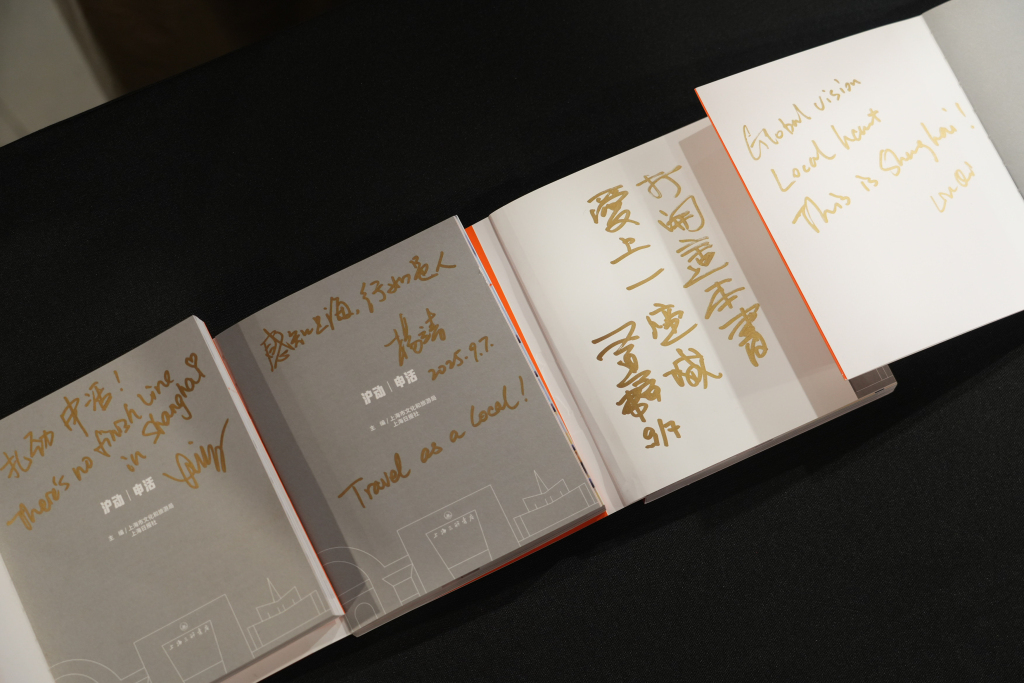 沪动 申活!
There's no finish line
in Shanghai
沪动 | 申活
主 编 / 上海市文化和旅游局
上海日报社
感知上海,行如是人
杨涛
2025.9.7.
沪动 | 申活
主 编 / 上海市文化和旅游局
上海日报社
Travel as a Local!
上海三联书店
打開這本書
愛上一座城
9/7
Global vision
Local heart
This is Shanghai!